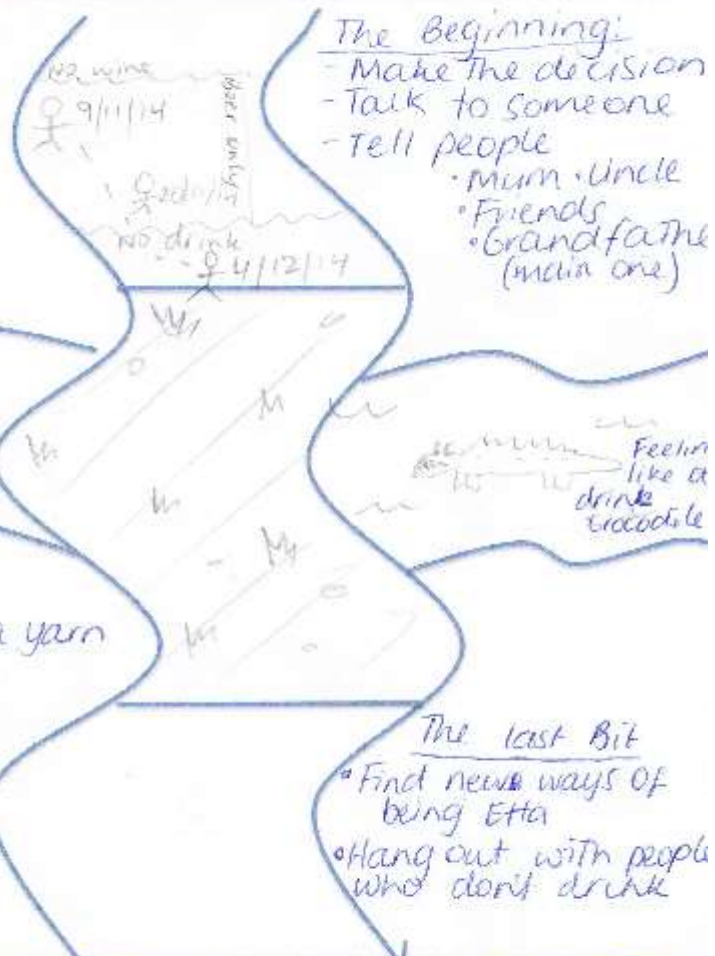 The Beginning:
- Make the decision
- Talk to someone
- Tell people
• Mum • Uncle
• Friends
• Grandfathe
(main one)
No wine
9/11/14
only
No drink
4/12/14
Feelin
like a
drink
crocodile
a yarn
The last Bit
• Find new ways of
being Etta
• Hang out with people
who don't drink